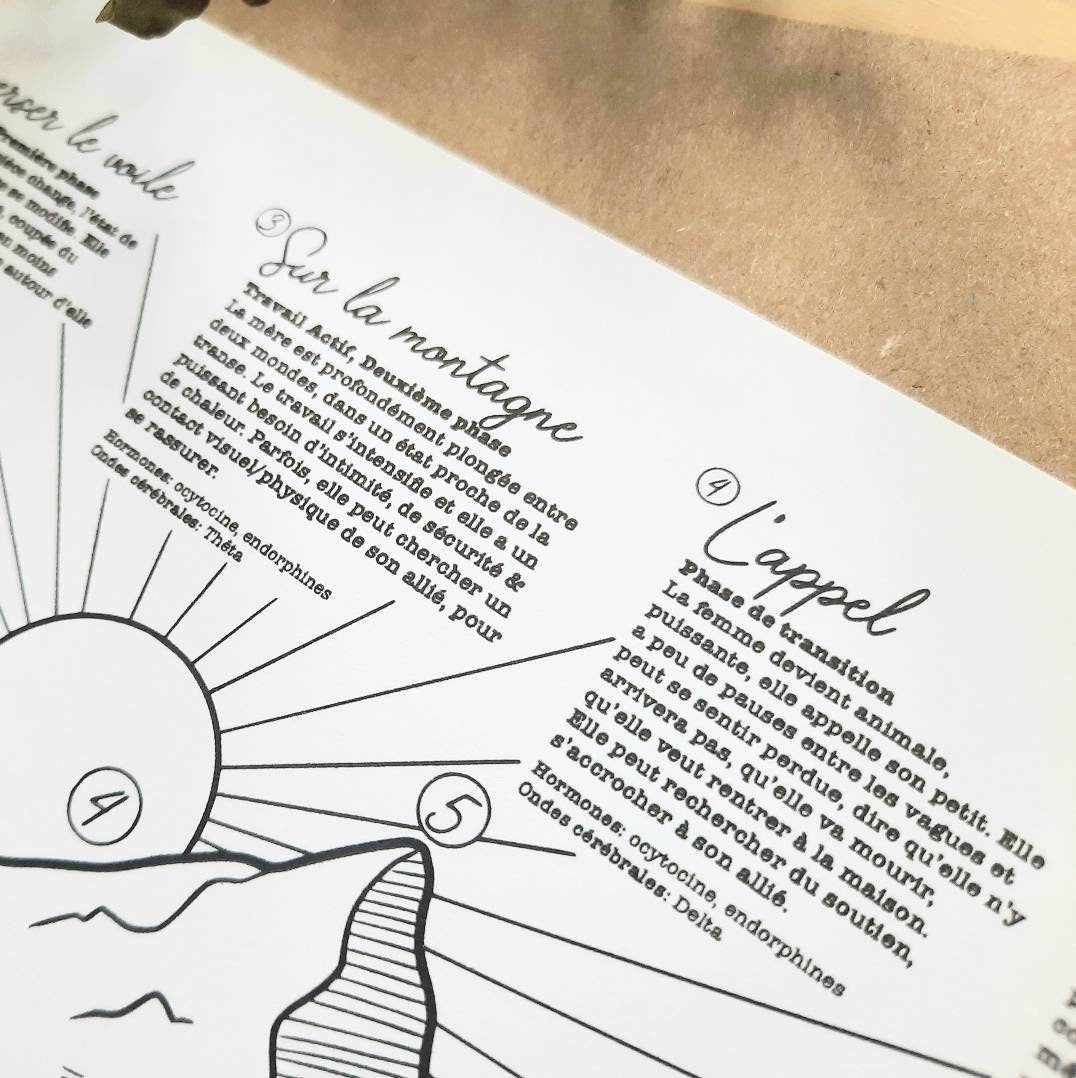 le voile
Première phase
change, l'état de
se modifie. Elle
coupée du
moins
autour d'elle
3
Sur la montagne
Travail Actif, Deuxième phase
La mère est profondément plongée entre
deux mondes, dans un état proche de la
transe. Le travail s'intensifie et elle a un
puissant besoin d'intimité, de sécurité &
de chaleur. Parfois, elle peut chercher un
contact visuel/physique de son allié, pour
se rassurer.
Hormones: ocytocine, endorphines
Ondes cérébrales: Thêta
4
L'appel
Phase de transition
La femme devient animale,
puissante, elle appelle son petit. Elle
a peu de pauses entre les vagues et
peut se sentir perdue, dire qu'elle n'y
arrivera pas, qu'elle va mourir,
qu'elle veut rentrer à la maison.
Elle peut rechercher du soutien,
s'accrocher à son allié.
Hormones: ocytocine, endorphines
Ondes cérébrales: Delta
4
5